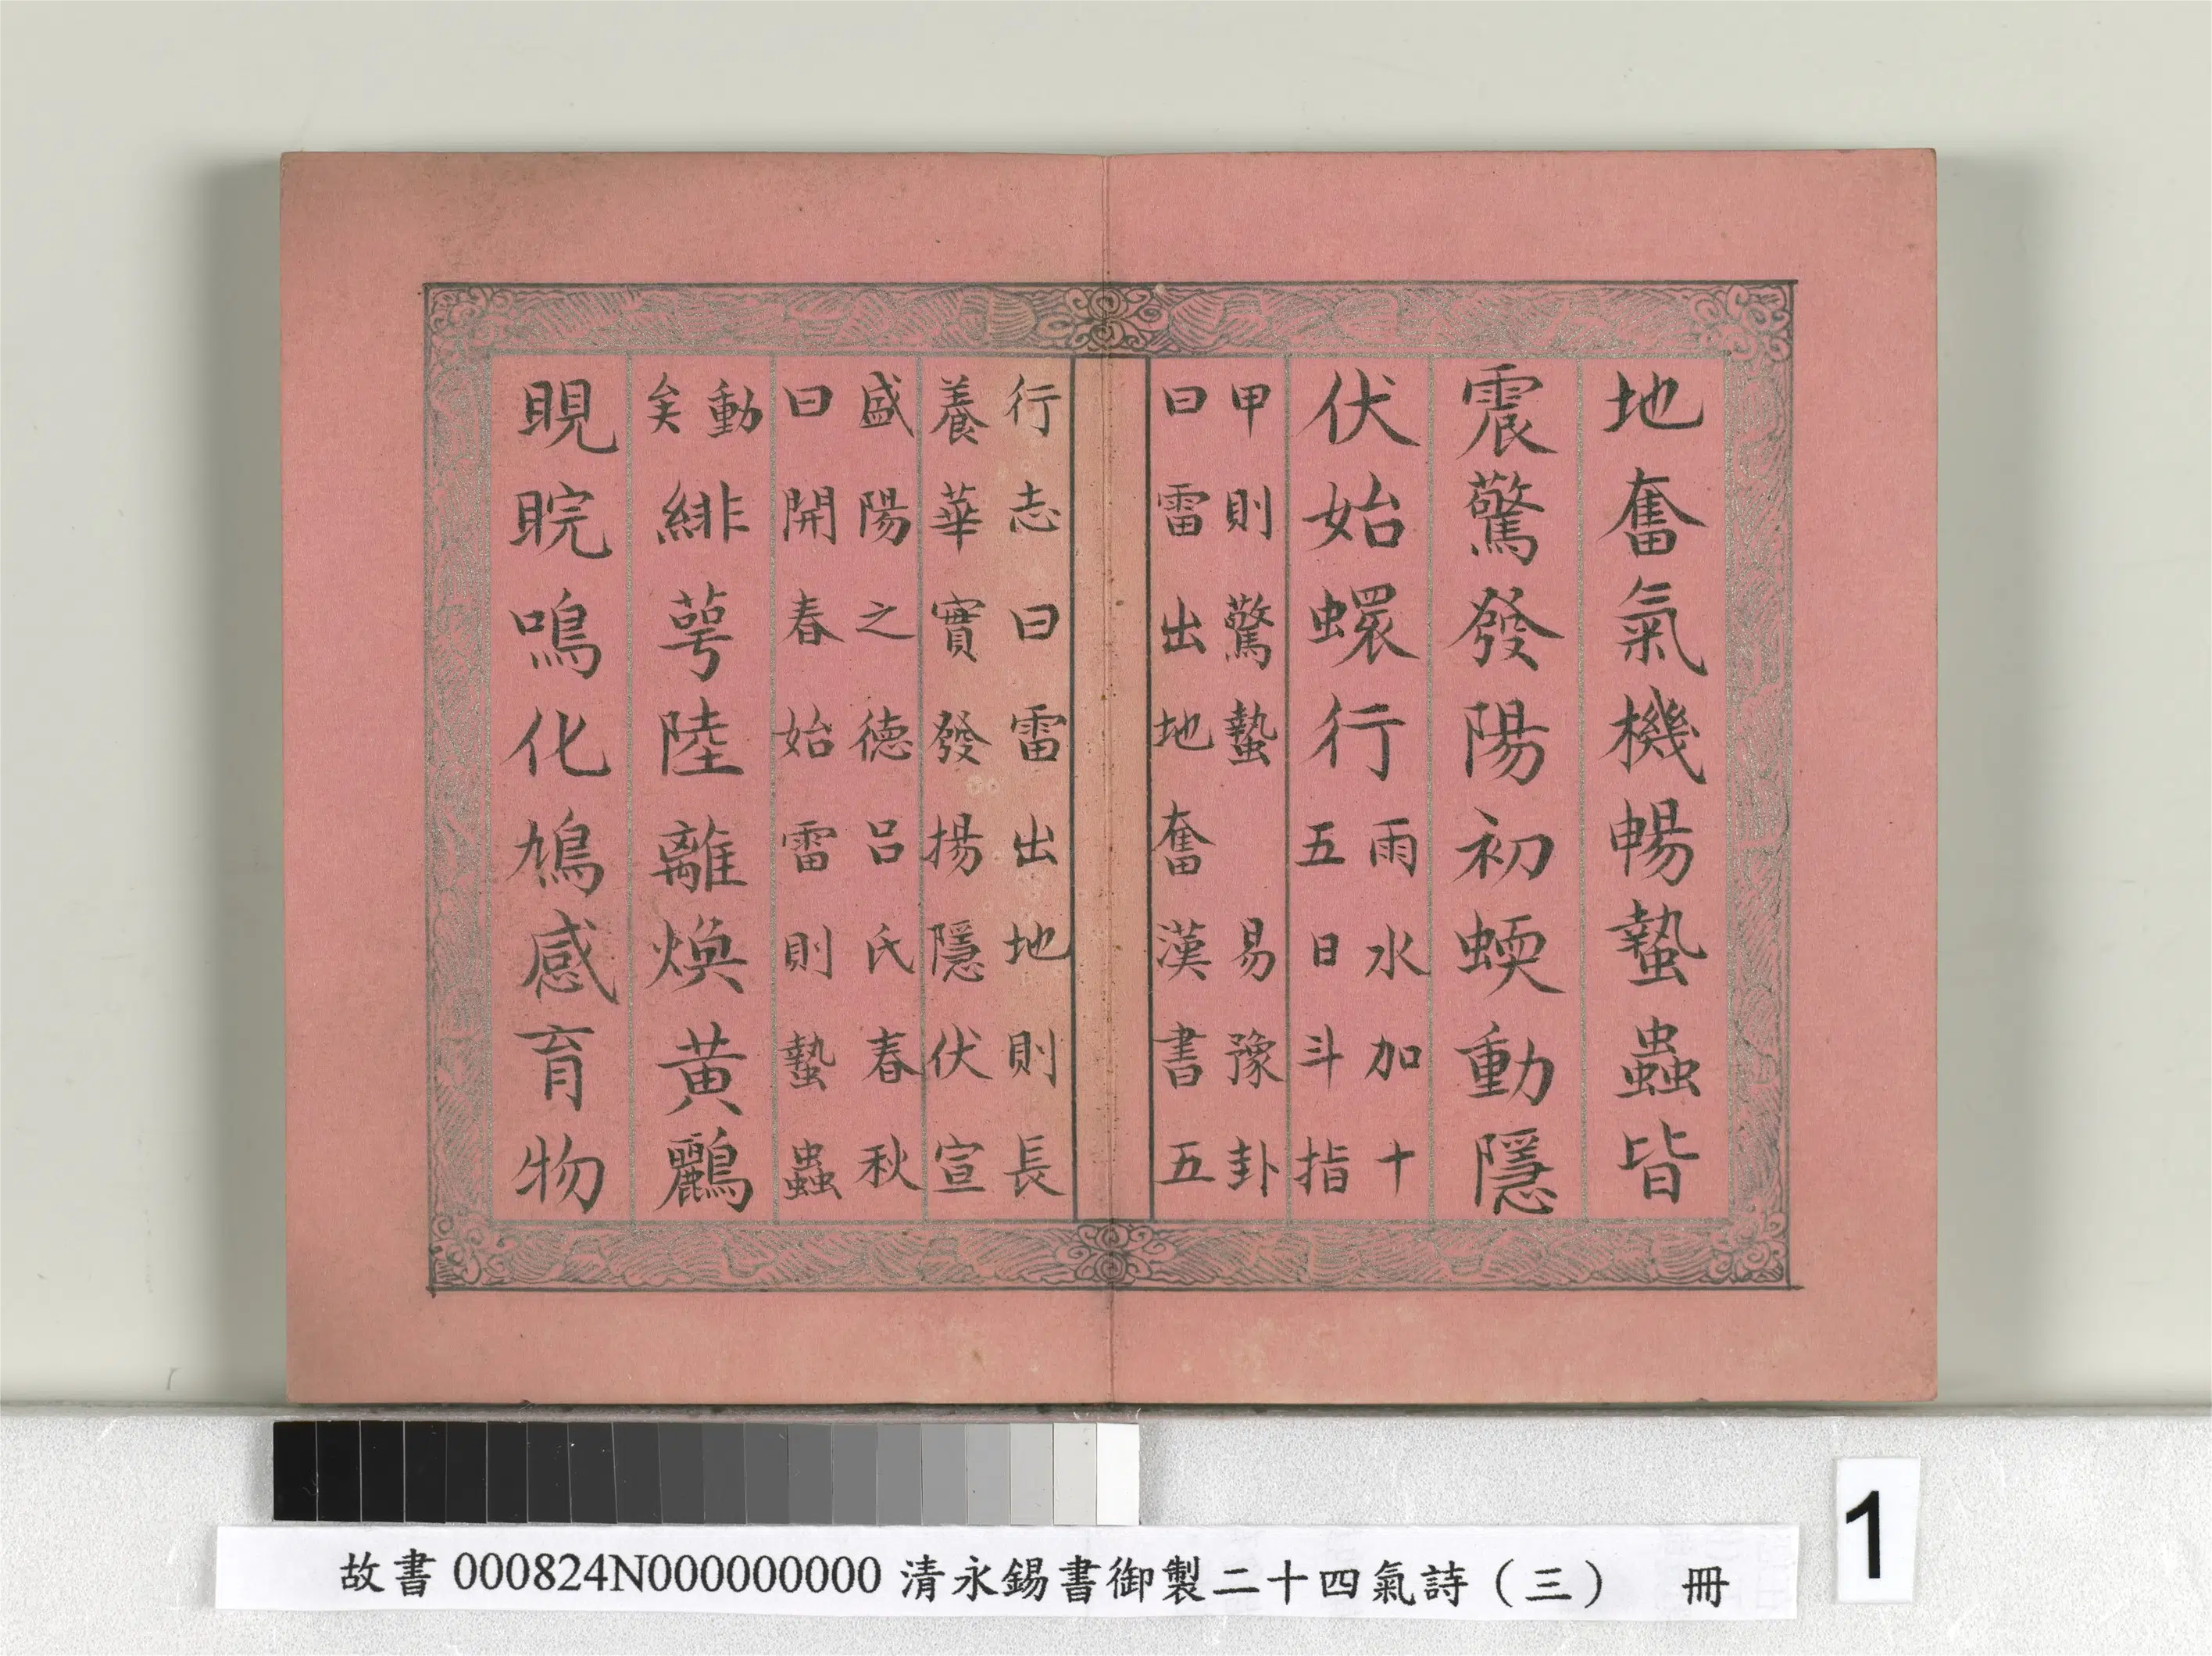 地奮氣機暢蟄蟲皆
震驚發陽初蝡動隱
伏始蠉行
雨水加十
五日斗指
甲則驚蟄　易豫卦
曰雷出地奮漢書五
行志曰雷出地則長
養華實發揚隱伏宣
盛陽之德呂氏春秋
曰開春始雷則蟄蟲
動
矣
緋萼陸離煥黃鸝
睍睆鳴化鳩感育物
故書 000824N000000000 清永錫書御製二十四氣詩（三）　冊
1